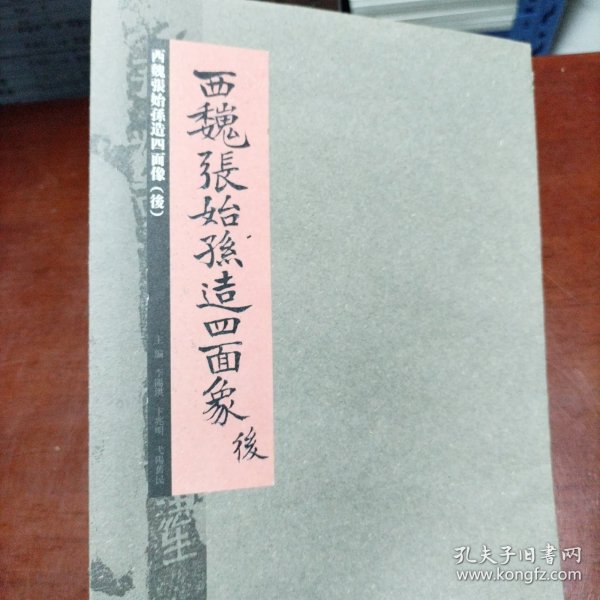 西魏張始孫造四面像(後)
主編 李陽洪 卞兆明 弋陽舊民
西魏張始孫造四面象
後
孔夫子旧书网
www.kongfz.com